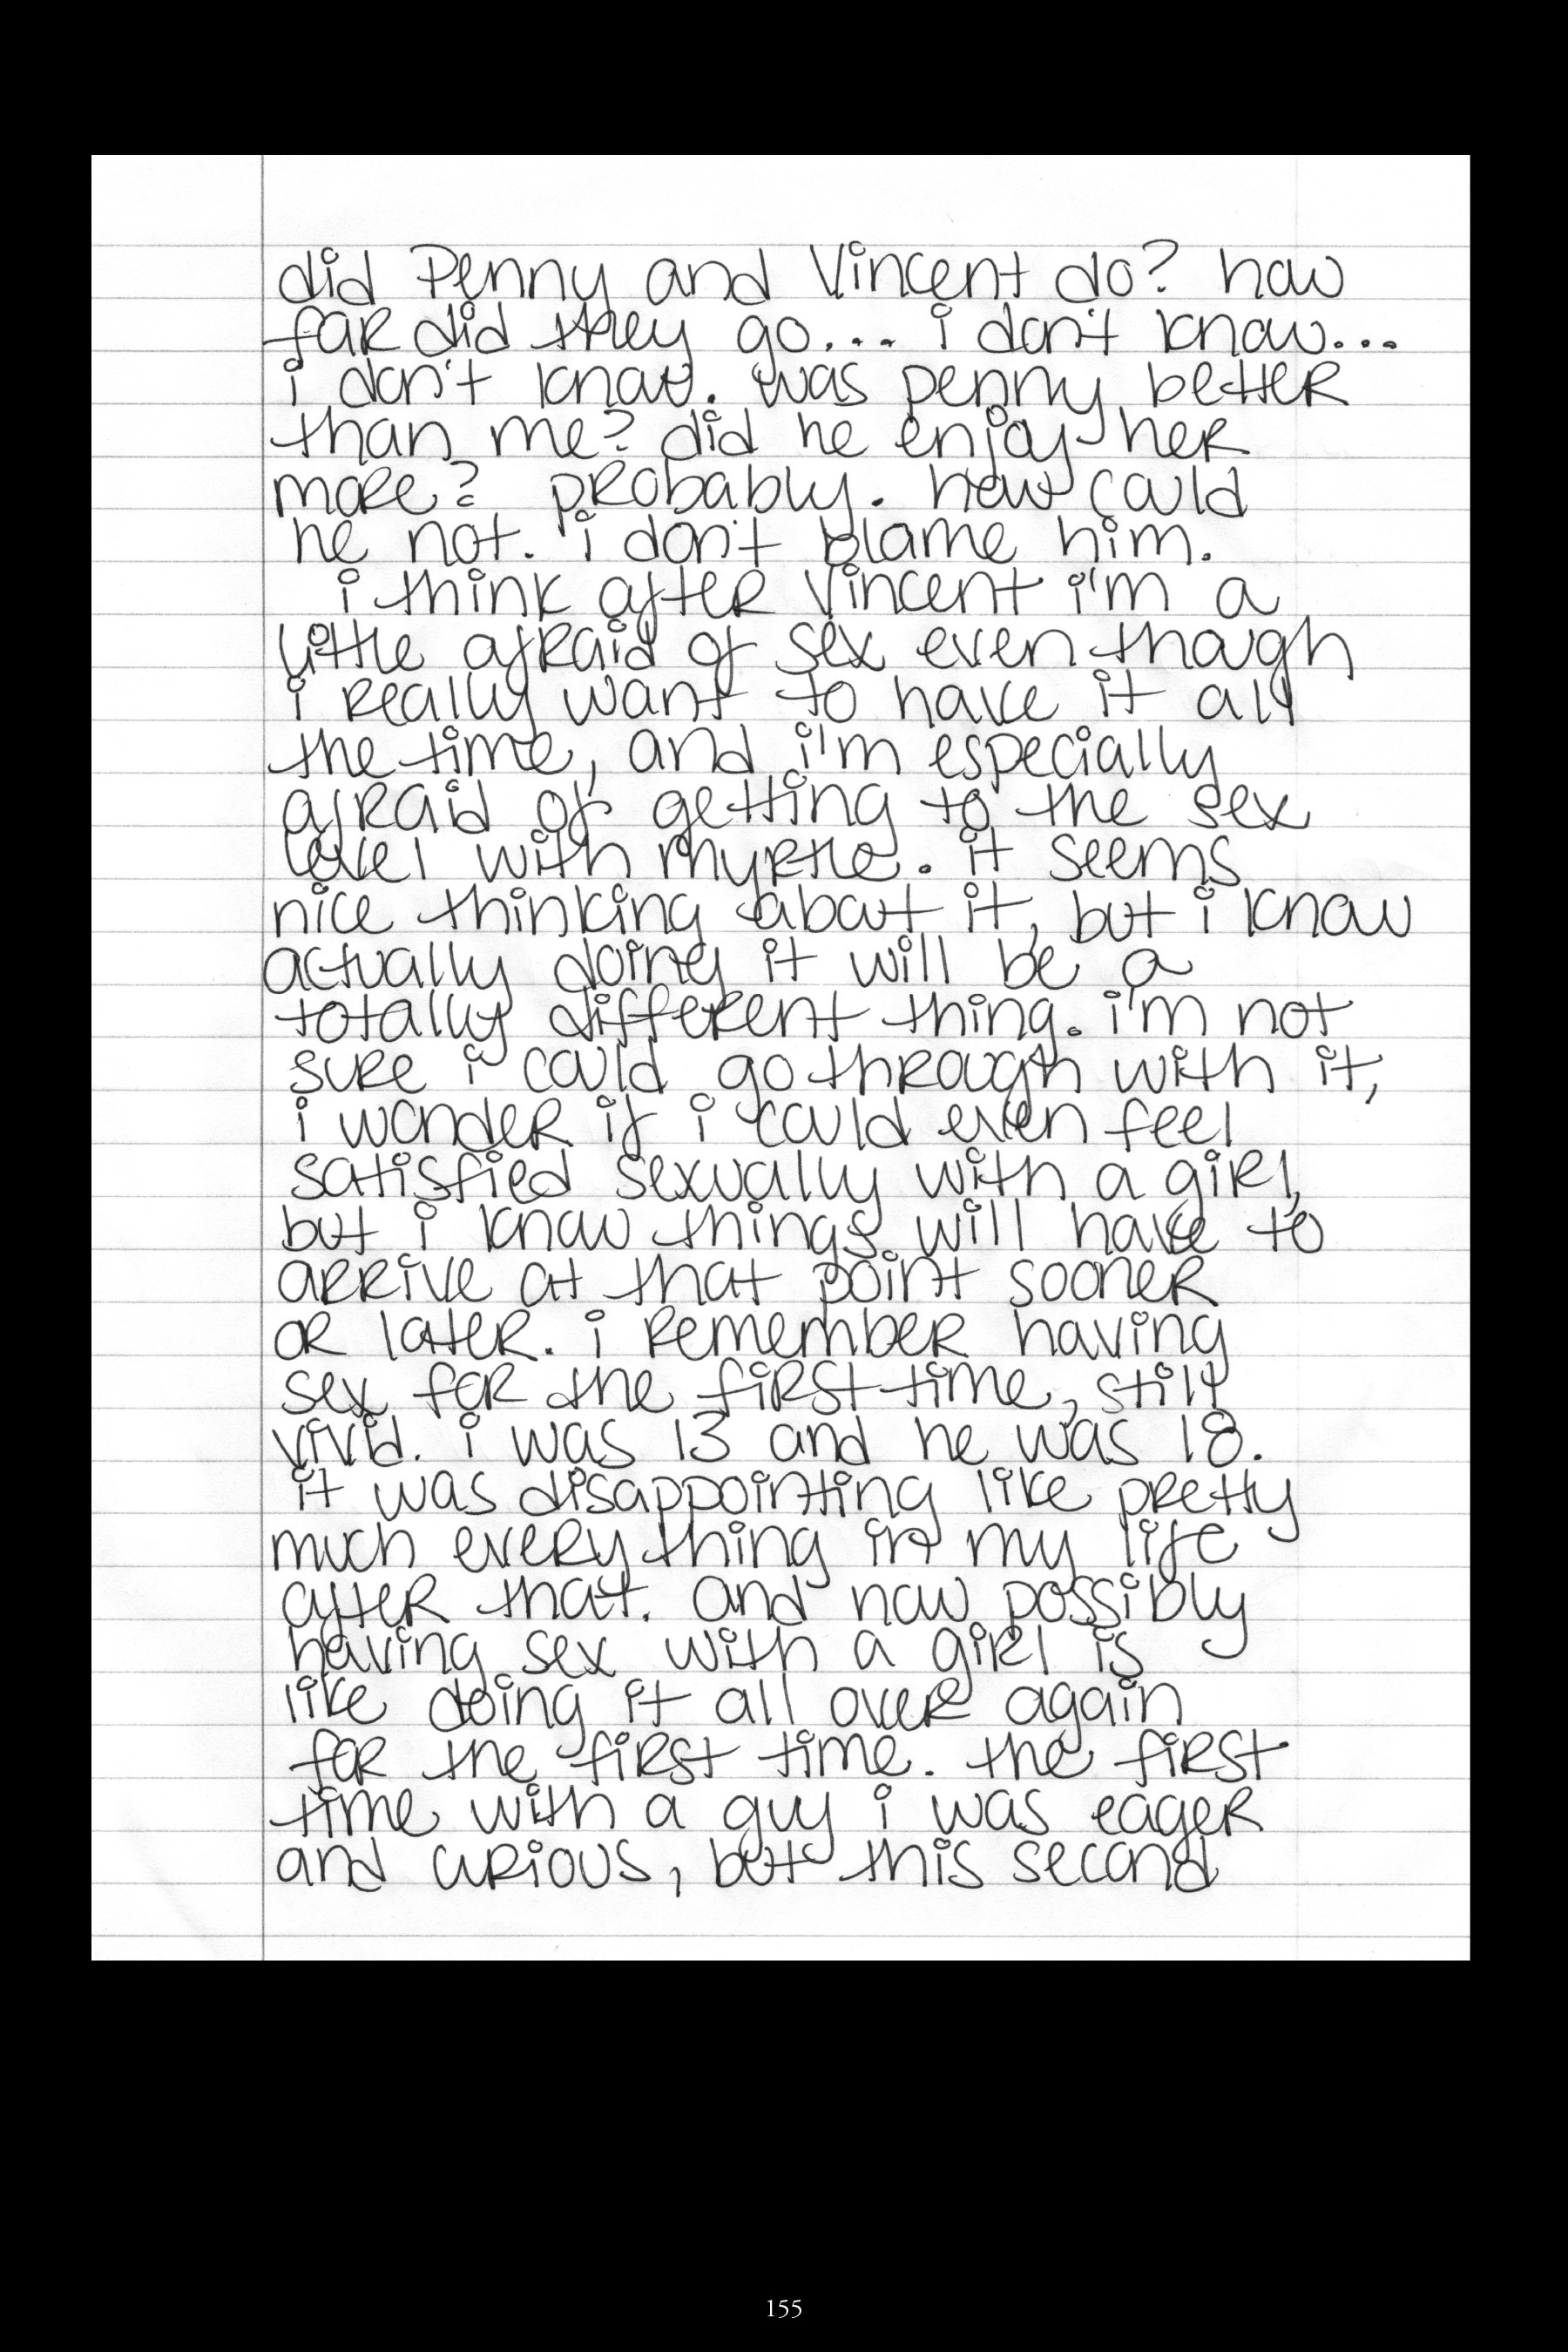 did Penny and Vincent do? how
far did they go... i don't know...
i don't know. was penny better
than me? did he enjoy her
more? probably. how could
he not. i don't blame him.
i think after Vincent i'm a
little afraid of sex even though
i really want to have it all
the time, and i'm especially
afraid of getting to the sex
level with myrtle. it seems
nice thinking about it, but i know
actually doing it will be a
totally different thing. i'm not
sure i could go through with it,
i wonder if i could even feel
satisfied sexually with a girl,
but i know things will have to
arrive at that point sooner
or later. i remember having
sex for the first time, still
vivid. i was 13 and he was 18.
it was disappointing like pretty
much everything in my life
after that. and now possibly
having sex with a girl is
like doing it all over again
for the first time. the first
time with a guy i was eager
and curious, but this second
155